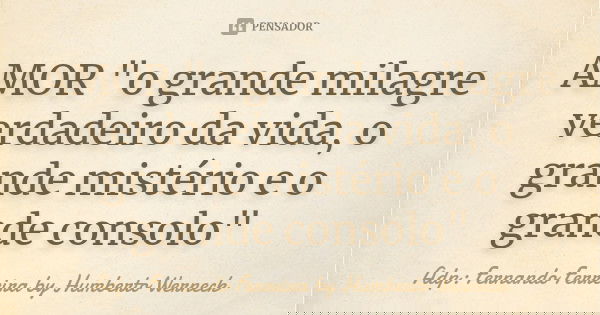 PENSADOR
AMOR "o grande milagre
verdadeiro da vida, o
grande mistério e o
grande consolo"
Adp: Fernando Ferreira by Humberto Werneck